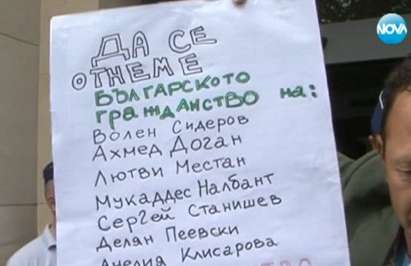 NOVA
ДА СЕ
ОТНЕМЕ
БЪЛГАРСКОТО
ГРАЖДАНСТВО на:
Волен Сидеров
Ахмед Доган
Лютви Местан
Мукаддес Налбант
Сергей Станишев
Делян Пеевски
Анелия Клисарова